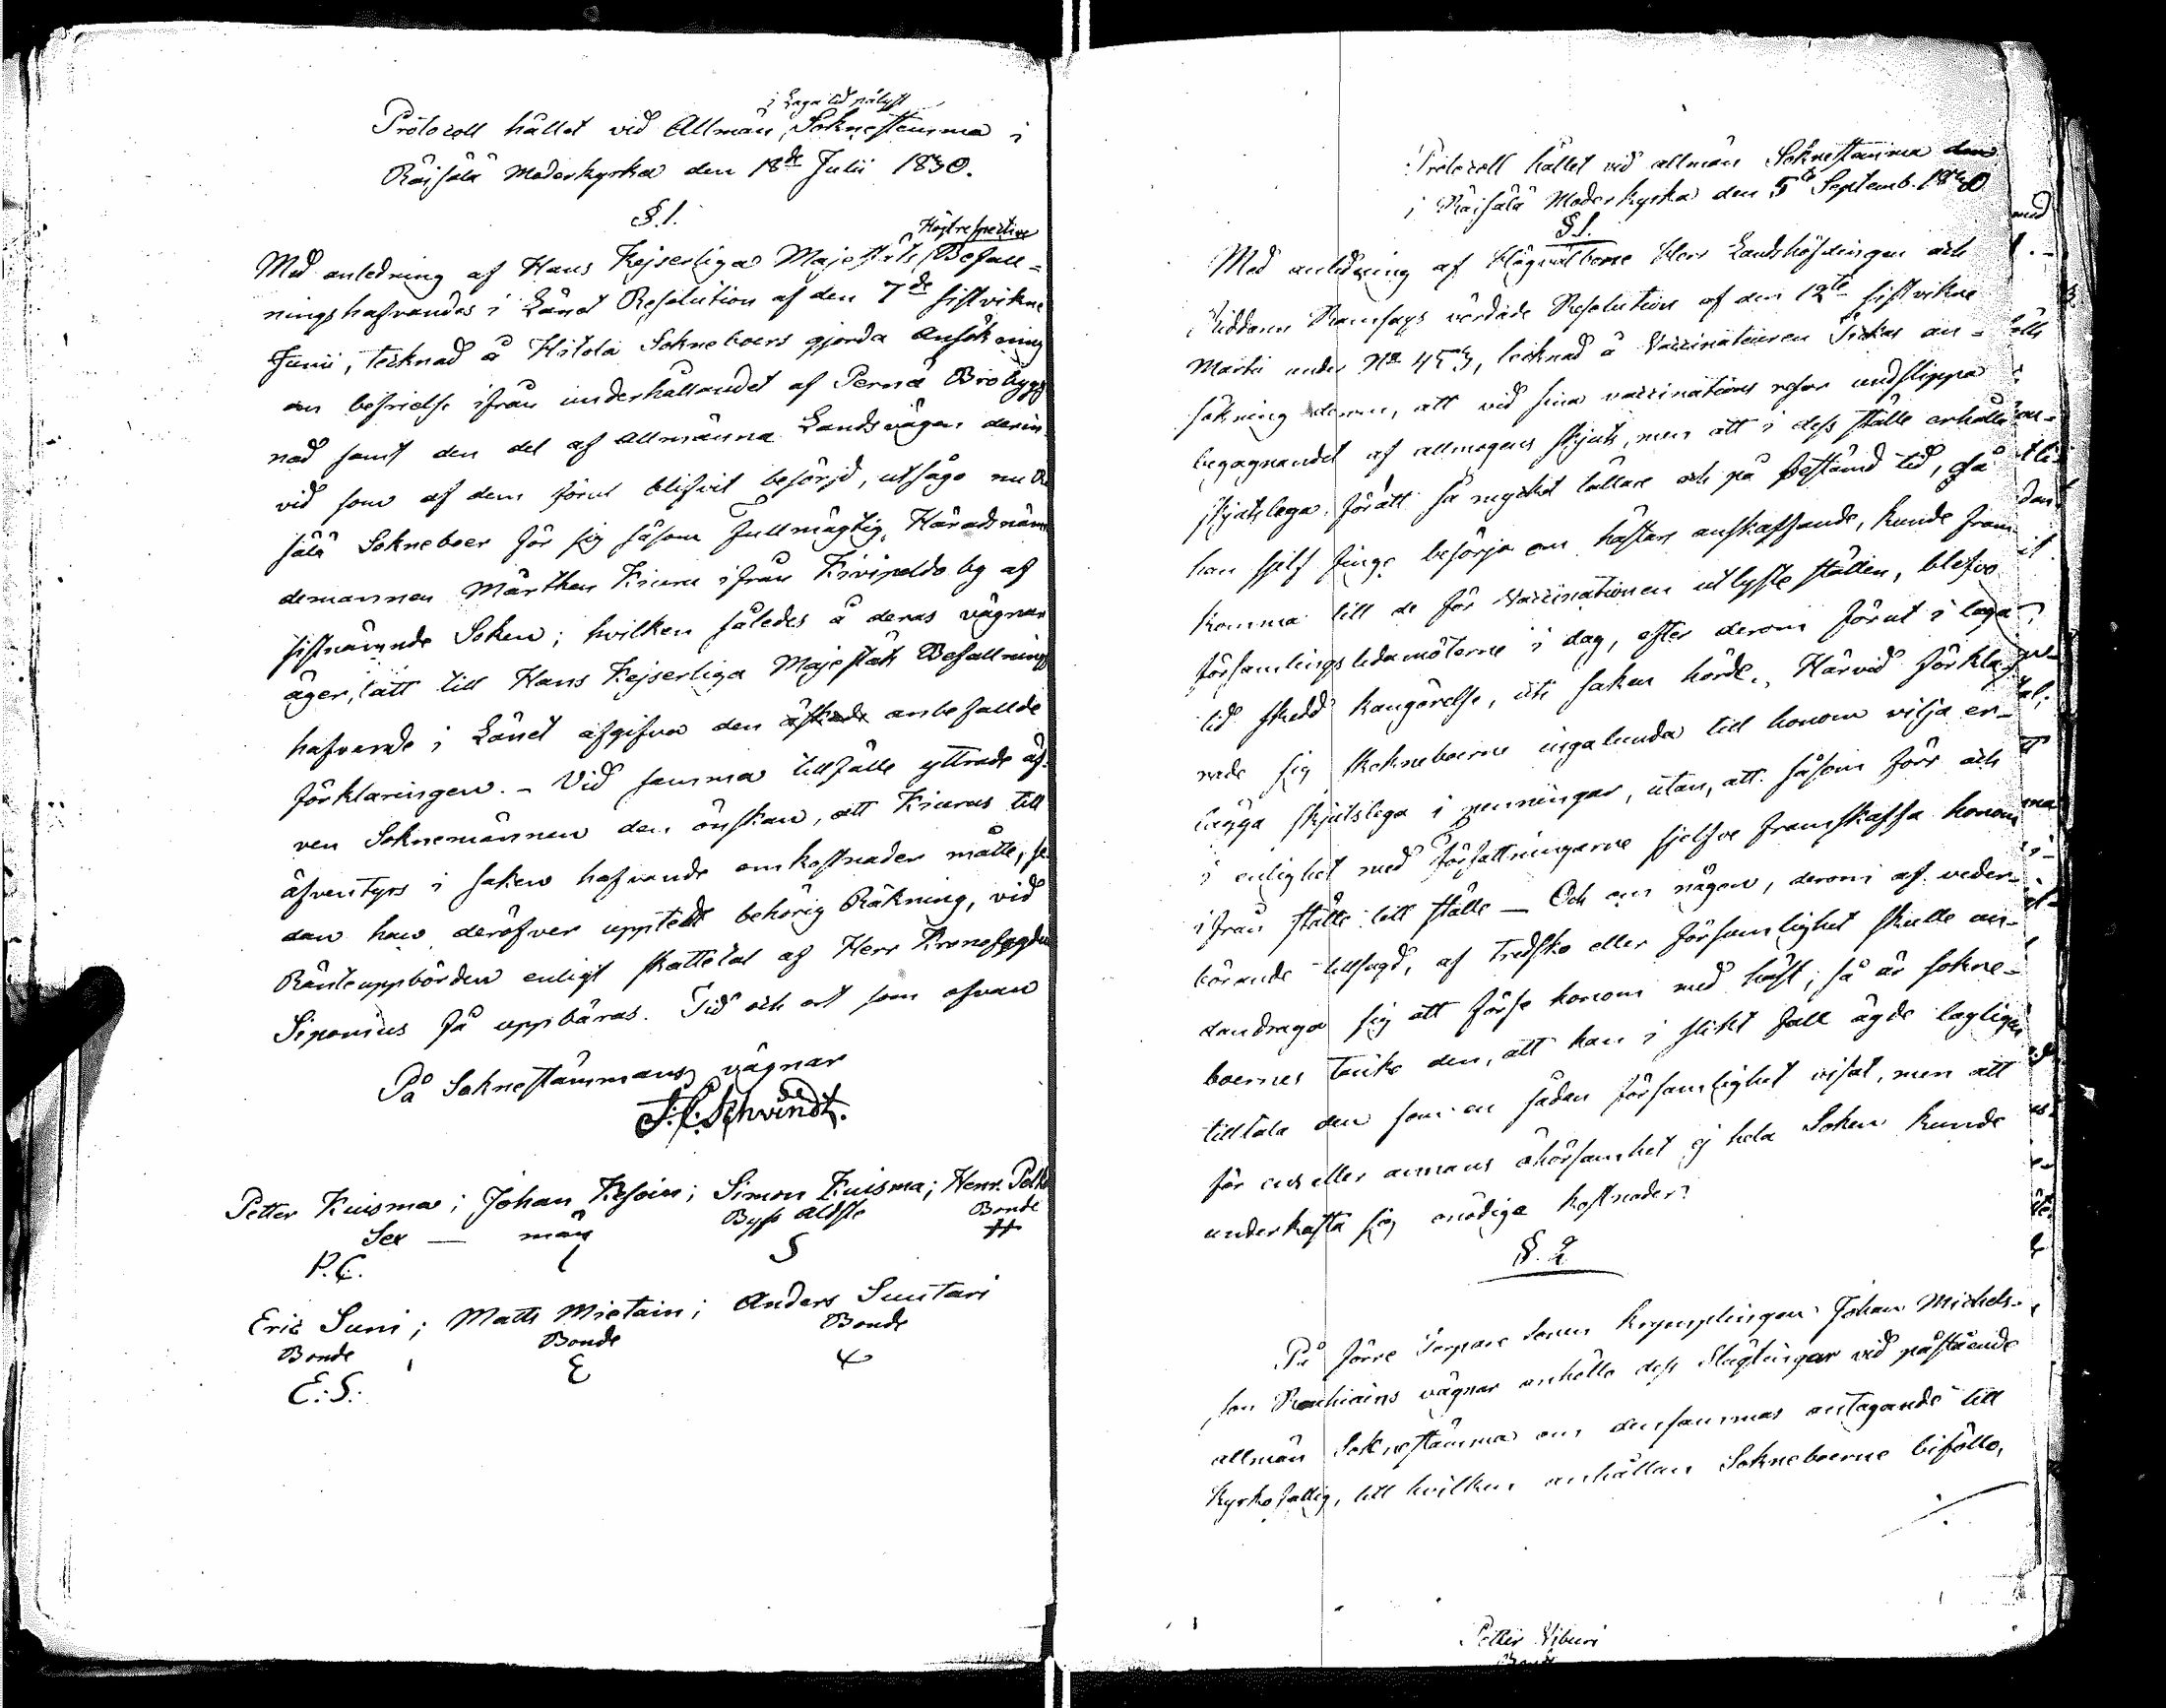 i Laga tid pålyst
Protocoll hållet vid Allmän Soknestemma i
Räisälä Moderkyrka den 18de Julii 1830.
§. 1.
Högtrespective
Med anledning af Hans Kejserliga Majestäts Befall=
ningshafvandes i Länet Resolution af den 7de sistvikne
Junii, tecknad å Hitola Sokneboers gjorda Ansökning
om befrielse ifrån underhållandet af Pernä Brobygg
nad samt den del af Allmänna Landsvägen derin
vid som af dem förut blifvit besörjd, utsågo nu Räi
sälä Sokneboer för sig såsom Fullmägtig, Häradsnäm
demannen Mårthen Kiuru ifrån Kivipeldo by af
sistnämnde Soken; hvilken således å deras vägnar
äger, att till Hans Kejserliga Majestäts Befallnings
hafvande i Länet afgifva den äskade anbefallde
förklaringen. - Vid samma tillfälle yttrade äf-
ven Soknemännen den önskan, att Kiurus till
äfventyrs i saken hafvande omkostnader måtte, se
dan han deröfver upptedt behörig Räkning, vid
Ränteuppbörden enligt skattetal af Herr Kronofogden
Siponius få uppbäras. Tid och ort som ofvan
På Soknestämmans vägnar
Schvindt.
Petter Kuisma; Johan Kesoin; Simon Kuisma; Henr. Polki
Sex — män Byss åldste Bonde
P.C. S H
Eric Suni; Matts Mietain; Anders Suutari
Bonde Bonde Bonde
E:S:
Protocoll hållet vid allmän Soknestämma den
i Räisälä Moderkyrka den 5te Septemb. 1830
§1.
Med anledning af Högvälborne Herr Landshöfdingen och
Riddaren Ramsays vördade Resolution af den 12te sistvikne
Martii under No 453, tecknad å Vaccinateuren Sirkas an=
sökning derom, att vid sina vaccinations resor undslippa
begagnandet af allmogens skjuts, men att i dess ställe erhålla
skjutslega, för att så mycket lättare och på bestämd tid, då
han sjelf finge besörja om hästars anskaffande, kunde fram
komma till de för Vaccinationen utlyste ställen, blefvo
församlingsledamöterne i dag, efter derom förut i laga
tid skedd kungörelse, uti saken hörde. Härvid förkla
rade sig Sokneboerne ingalunda till honom vilja er-
lägga skjutslega i penningar, utan, att såsom förr och
i enlighet med författningarne sjelfve framskaffa honom
ifrån ställe till ställe — Och om någon, derom af veder-
börande tillsagd, af tredsko eller försumlighet skulle un-
dandraga sig att förse honom med häst; så är sokne-
boernes tanke den, att han i slikt fall ägde lagligen
tilltala den som en sådan försumlighet visat, men att
för ens eller annans ohörsamhet ej hela Soken kunde
underkasta sig onödiga kostnader.
§. 2
På förre Torpare Sonen Krymplingen Johan Michels-
son Rauhiains vägnar anhöllo dess Slägtingar vid påstående
allmän Soknestämma om densammas antagande till
Kyrkofattig, till hvilken anhållan Sokneboerne biföllo,
./.
Petter